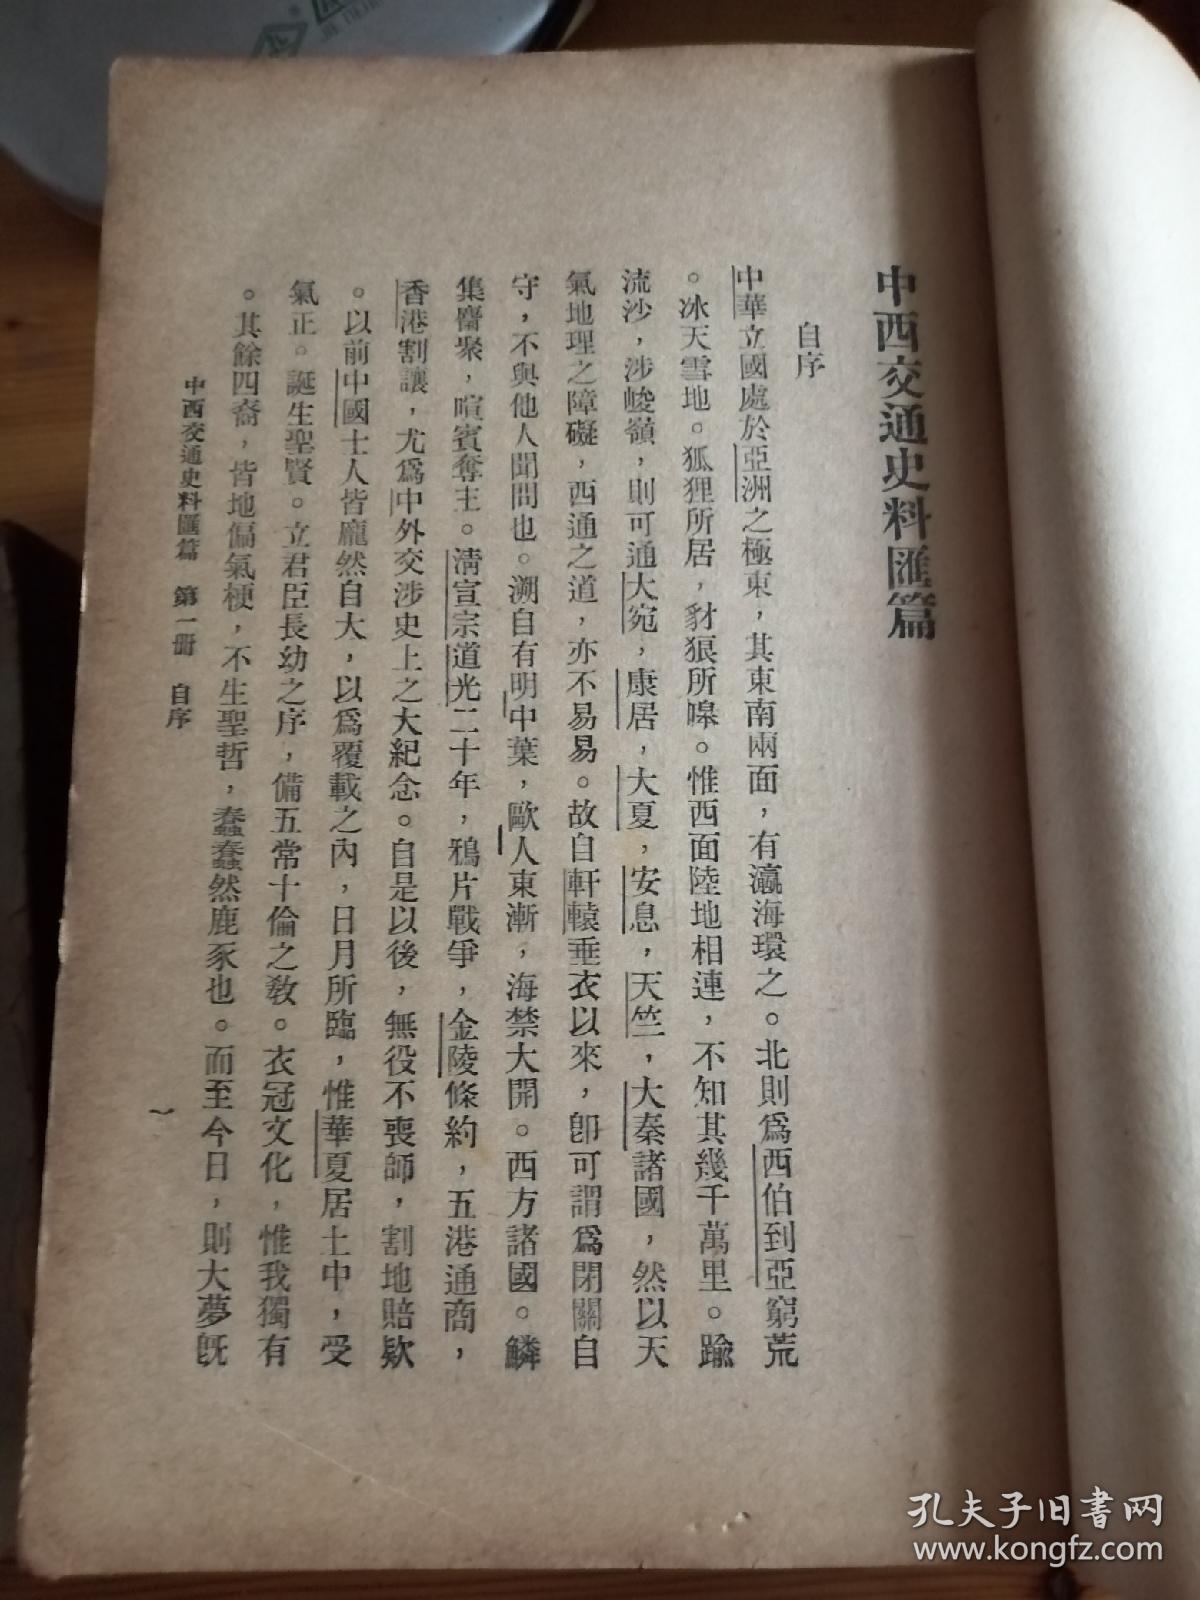 中西交通史料匯篇
自序
中華立國處於亞洲之極東，其東南兩面，有瀛海環之。北則爲西伯利亞窮荒
。冰天雪地。狐狸所居，豺狼所嘷。惟西面陸地相連，不知其幾千萬里。踰
流沙，涉峻嶺，則可通大宛，康居，大夏，安息，天竺，大秦諸國，然以天
氣地理之障礙，西通之道，亦不易易。故自軒轅垂衣以來，卽可謂爲閉關自
守，不與他人聞問也。溯自有明中葉，歐人東漸，海禁大開。西方諸國。鱗
集麕聚，喧賓奪主。淸宣宗道光二十年，鴉片戰爭，金陵條約，五港通商，
香港割讓，尤爲中外交涉史上之大紀念。自是以後，無役不喪師，割地賠欵
。以前中國士人皆龐然自大，以爲覆載之內，日月所臨，惟華夏居土中，受
氣正。誕生聖賢。立君臣長幼之序，備五常十倫之敎。衣冠文化，惟我獨有
。其餘四裔，皆地偏氣梗，不生聖哲，蠢蠢然鹿豕也。而至今日，則大夢旣
中西交通史料匯篇 第一册 自序
一
孔夫子旧书网
www.kongfz.com